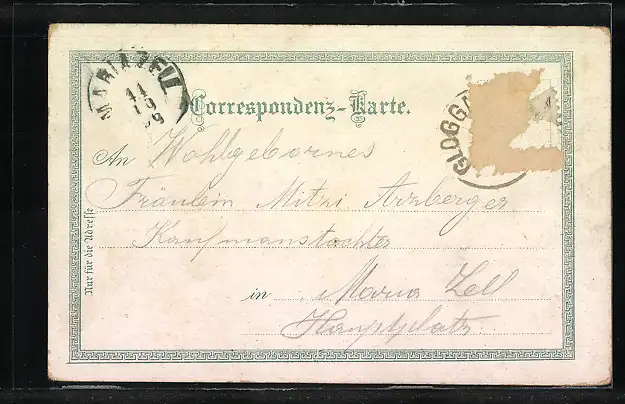 MARIAZELL
11
10
99
Correspondenz-Karte.
GLOGG
An Wohlgebornes
Fräulein Mitzi Arzberger
Kaufmanstochter
in Maria Zell
Hauptplatz
Nur für die Adresse